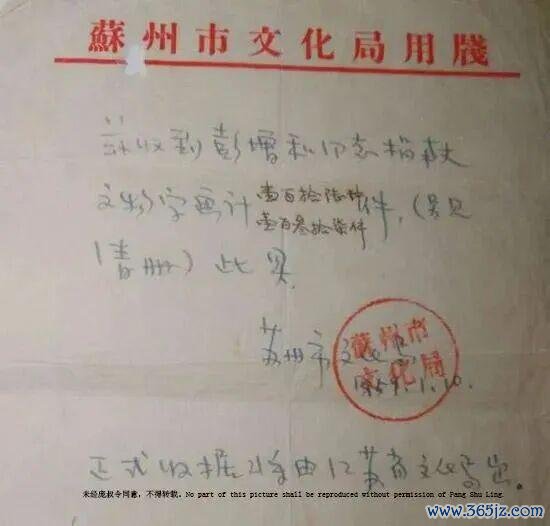 蘇州市文化局用牋
兹收到彭增和同志捐献
文物字画计壹百拾陆种件，(另见
壹百叁拾柒件
清册)此具.
苏州市文化局
蘇州市
文化局
1959.1.10.
正式收据将由江苏省文化局出.
未经庞叔令同意，不得转载。No part of this picture shall be reproduced without permission of Pang Shu Ling.
www.365jz.com